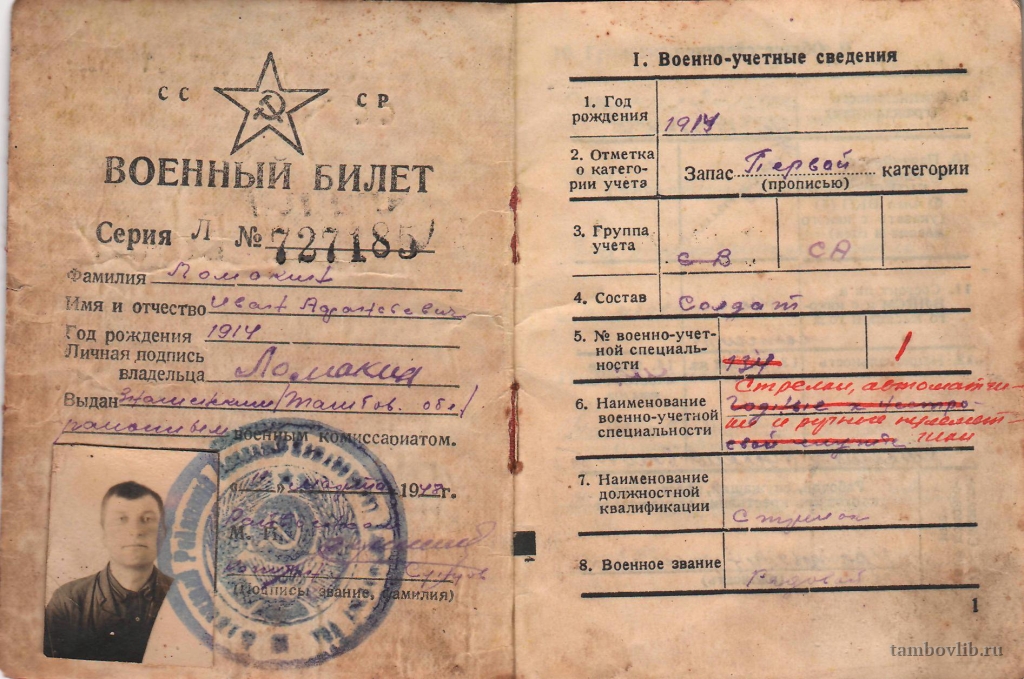 СС СР
ВОЕННЫЙ БИЛЕТ
Серия Л № 727185
Фамилия Ломакин
Имя и отчество Иван
Год рождения 1914
Личная подпись
владельца Ломакин
Выдан Знаменским /Тамбов. обл/
районным военным комиссариатом.
марта 1948 г.
М. П.
(Подпись, звание, фамилия)
I. Военно-учетные сведения
1. Год
рождения 1914
2. Отметка
о катего-
рии учета
Запас Первой категории
(прописью)
3. Группа
учета
с В СА
4. Состав солдат
5. № военно-учет-
ной специаль-
ности
134 1
6. Наименование
военно-учетной
специальности
Стрелки, автоматчи-
Годные к нестро-
ки и ручные пулемет-
евой службе чики
7. Наименование
должностной
квалификации
Стрелок
8. Военное звание Рядовой
1
tambovlib.ru